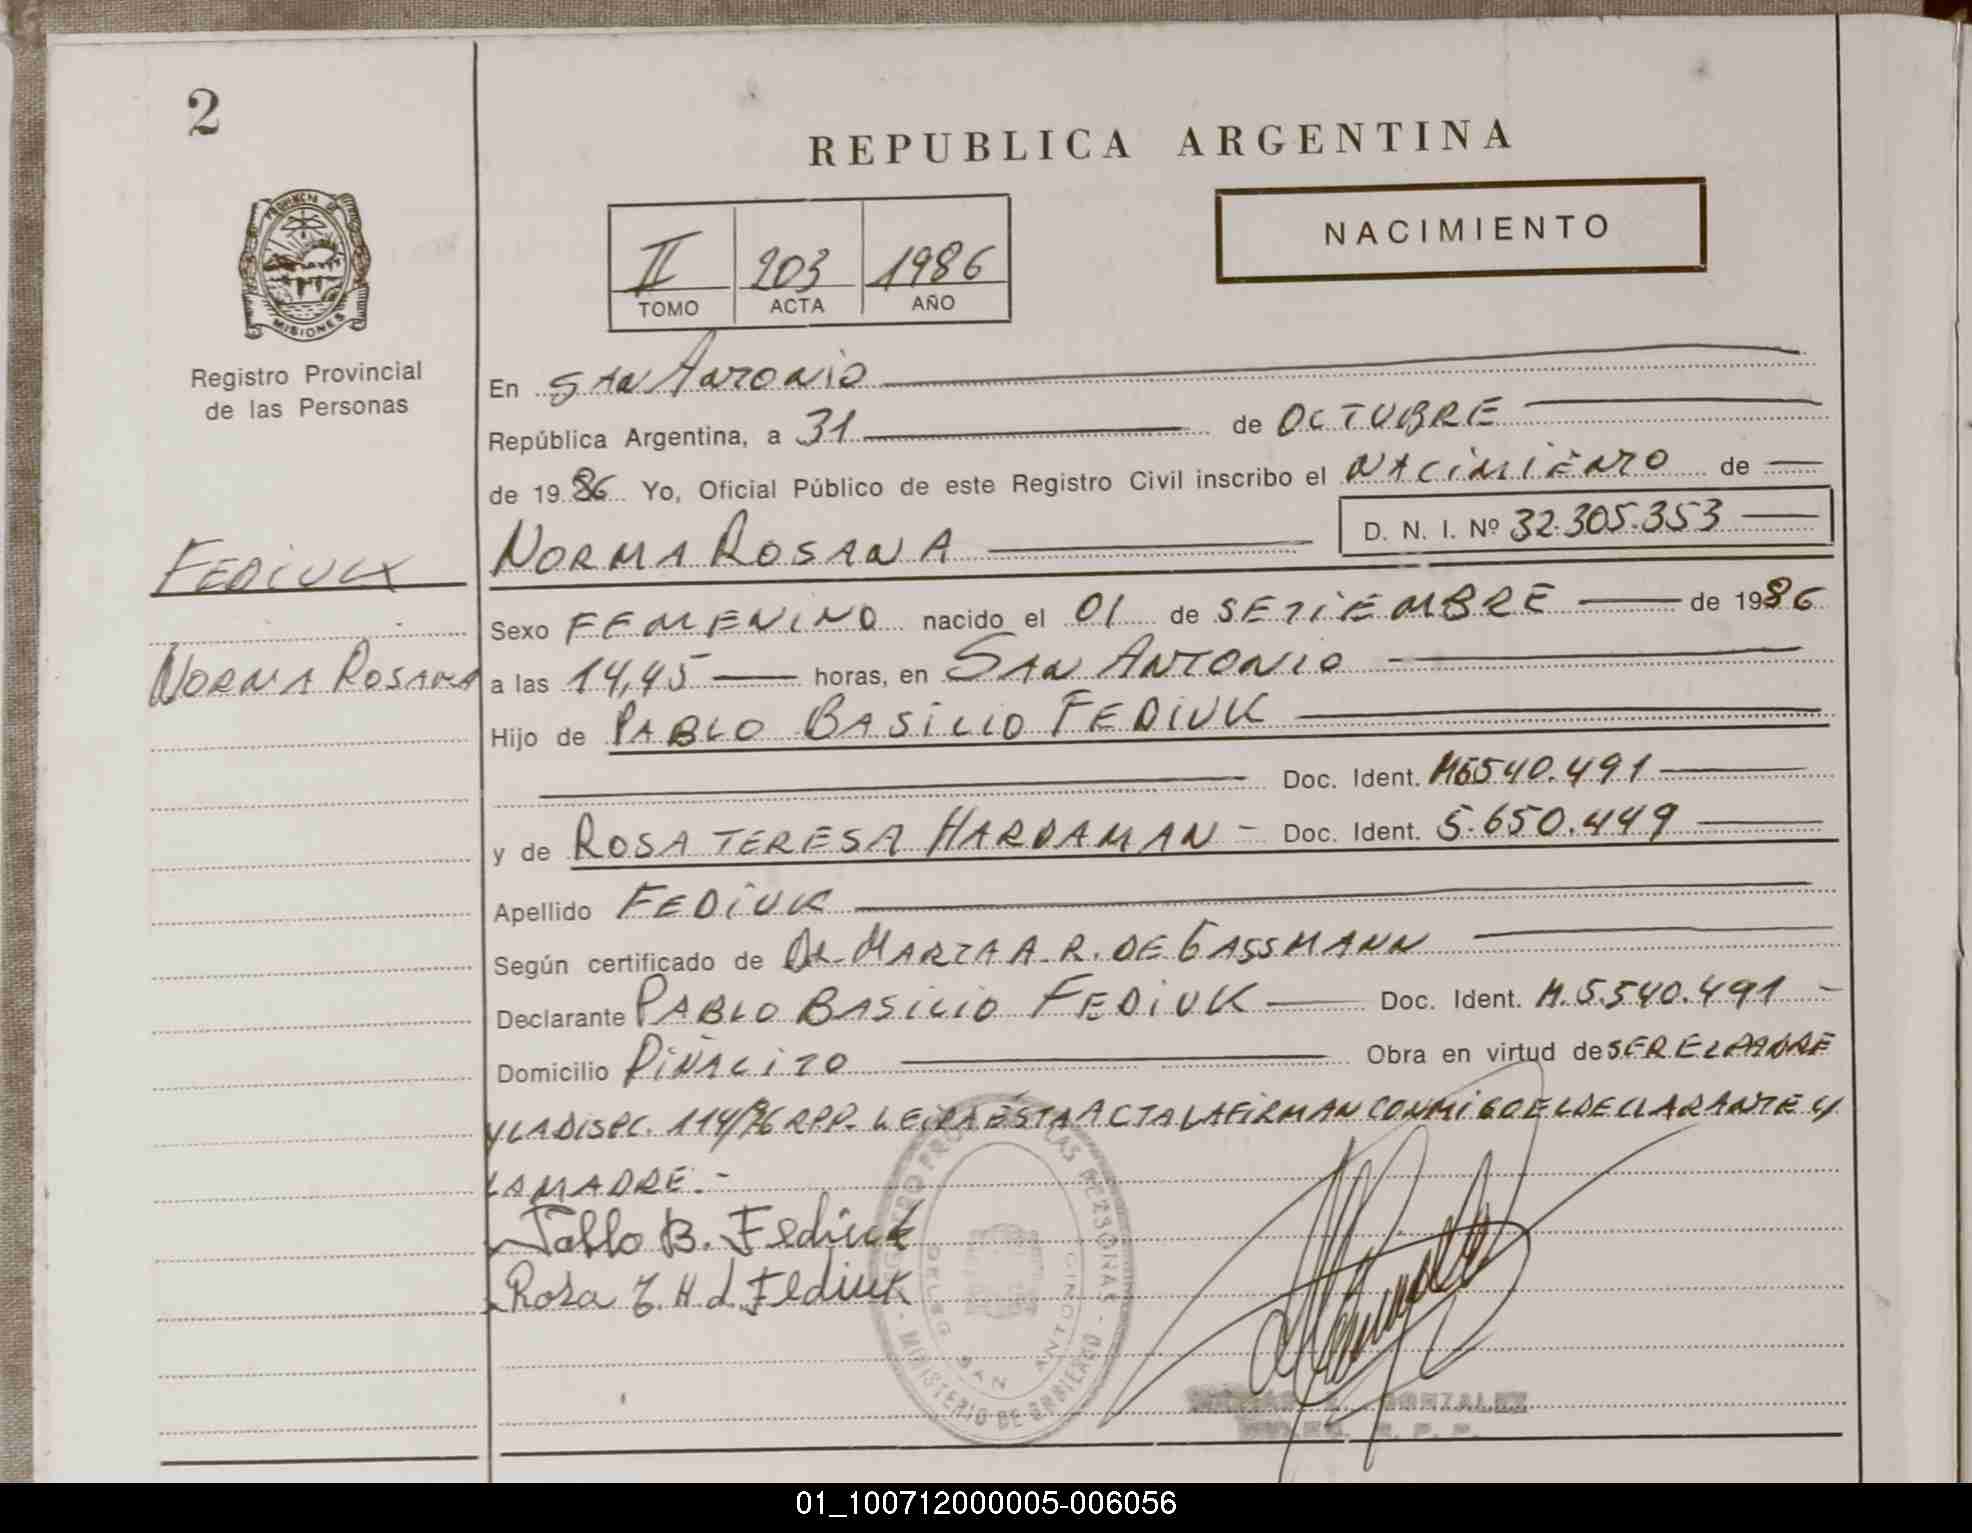 2
REPUBLICA ARGENTINA
PROVINCIA DE
MISIONES
Registro Provincial
de las Personas
II 203 1986
TOMO ACTA AÑO
NACIMIENTO
En SAN ANTONIO
República Argentina, a 31 de OCTUBRE
de 19 86 Yo, Oficial Público de este Registro Civil inscribo el NACIMIENTO de
NORMA ROSANA D. N. I. Nº 32.305.353
FEDIUK
NORMA ROSANA
Sexo FEMENINO nacido el 01 de SETIEMBRE de 1986
a las 14,45 horas, en SAN ANTONIO
Hijo de PABLO BASILIO FEDIUK
Doc. Ident. M5540.491
y de ROSA TERESA HARDAMAN - Doc. Ident. 5.650.449
Apellido FEDIUK
Según certificado de Dr. MARTA A. R. DE GASSMANN
Declarante PABLO BASILIO FEDIUK Doc. Ident. M. 5.540.491 -
Domicilio PIÑALITO Obra en virtud de SER EL PADRE
Y LA DISPC. 114/76 RPP. LEIDA ÉSTA ACTA LA FIRMAN CONMIGO EL DECLARANTE Y
LA MADRE.-
Pablo B. Fediuk
Rosa T. H d Fediuk
REGISTRO PROV. DE LAS PERSONAS - MINISTERIO DE GOBIERNO -
DELEG SAN ANTONIO
GONZALEZ
R. P. P.
01_100712000005-006056